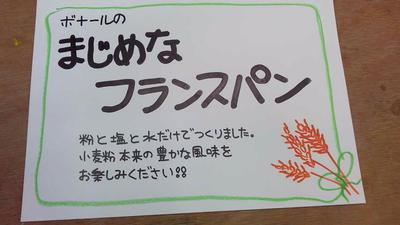 ボナールの
まじめな
フランスパン
粉と塩と水だけでつくりました。
小麦粉本来の豊かな風味を
お楽しみください!!